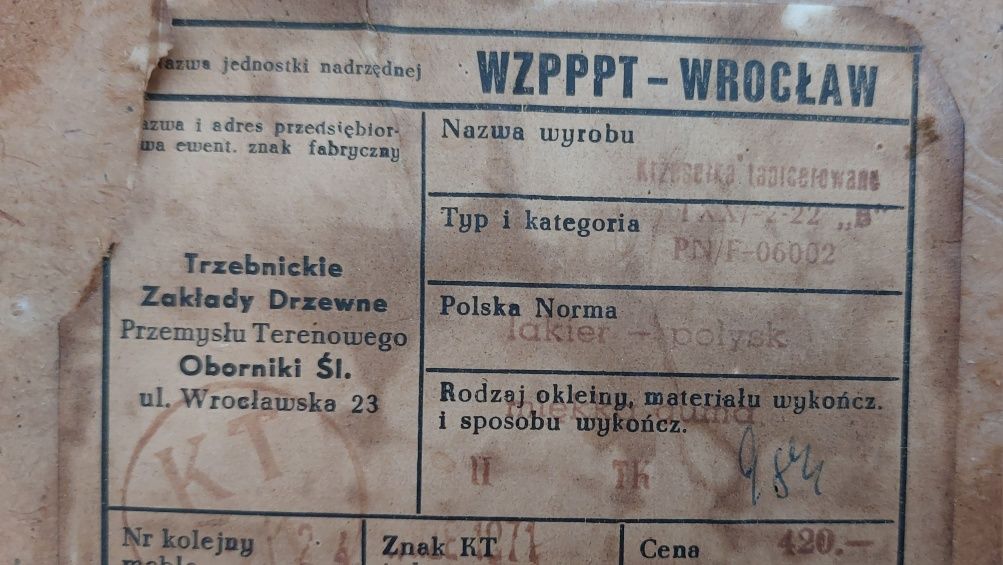 Nazwa jednostki nadrzędnej
WZPPPT – WROCŁAW
azwa i adres przedsiębior-
wa ewent. znak fabryczny
Trzebnickie
Zakłady Drzewne
Przemysłu Terenowego
Oborniki Śl.
ul. Wrocławska 23
KT
Nazwa wyrobu
Krzesełka tapicerowane
Typ i kategoria
-2-22 „B"
PN/F-06002
Polska Norma
lakier – połysk
Rodzaj okleiny, materiału wykończ.
miękk. guma
i sposobu wykończ.
II Tk
984
Nr kolejny
mebla
Znak KT
1971
Cena
420.—